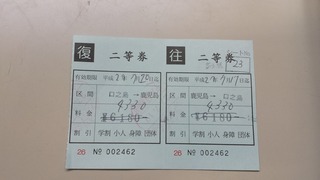 復 二等券
有効期限 平成2年7月20日迄
区間 口之島→鹿児島
4,330
料金 ¥6180-
割引 学割 小人 身障 団体
26 Nº 002462
往 二等券
23
有効期限 平成2年7月17日迄
区間 鹿児島→口之島
4330
料金 ¥6180-
割引 学割 小人 身障 団体
26 Nº 002462